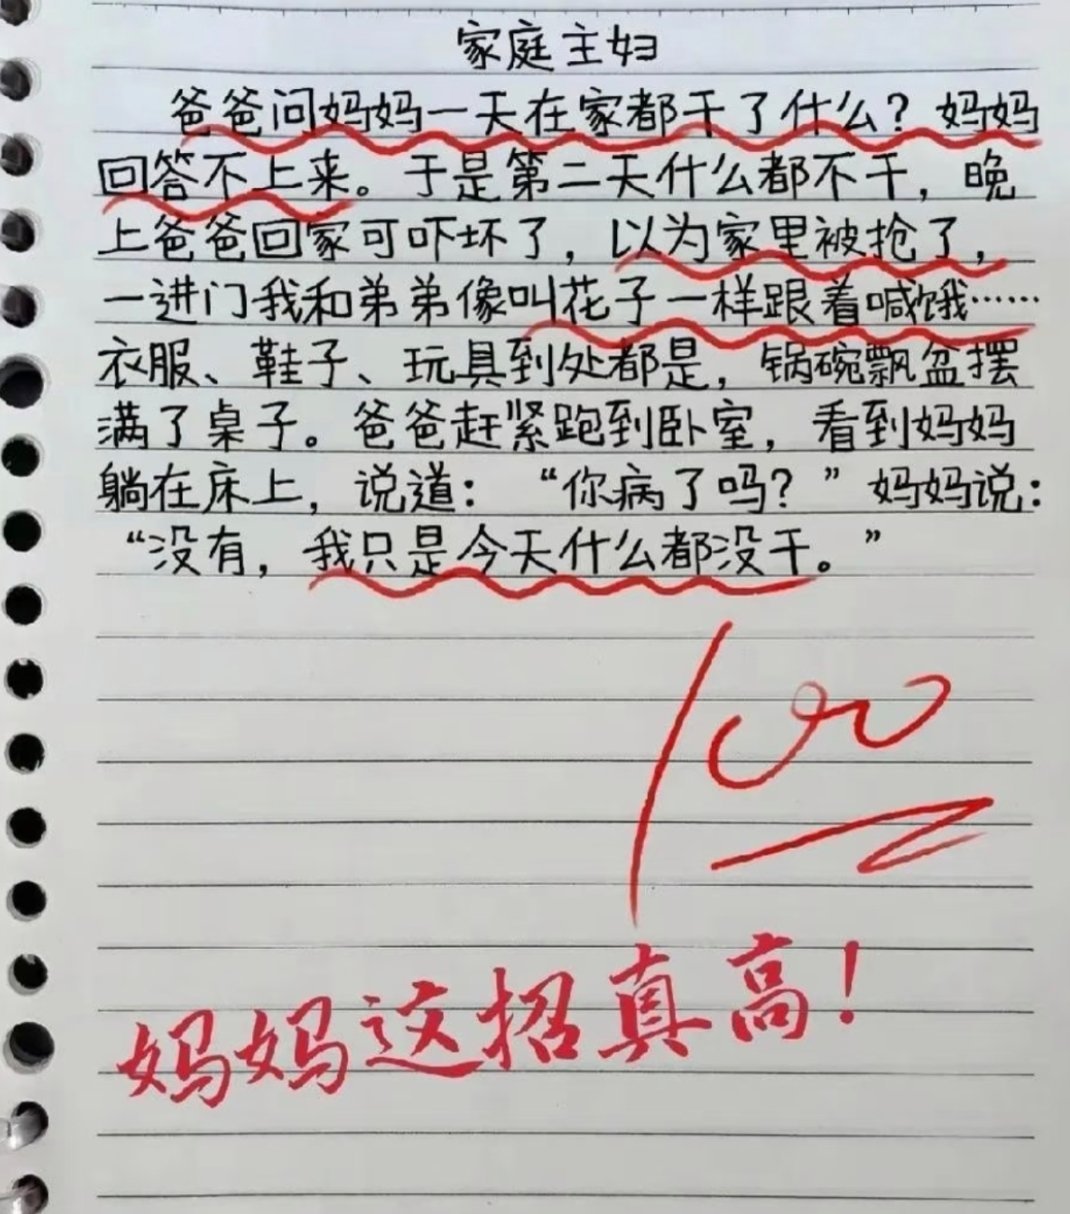 家庭主妇
爸爸问妈妈一天在家都干了什么？妈妈
回答不上来。于是第二天什么都不干，晚
上爸爸回家可吓坏了，以为家里被抢了，
一进门我和弟弟像叫花子一样跟着喊饿……
衣服、鞋子、玩具到处都是，锅碗飘盆摆
满了桌子。爸爸赶紧跑到卧室，看到妈妈
躺在床上，说道：“你病了吗？”妈妈说：
“没有，我只是今天什么都没干。”
100
妈妈这招真高！